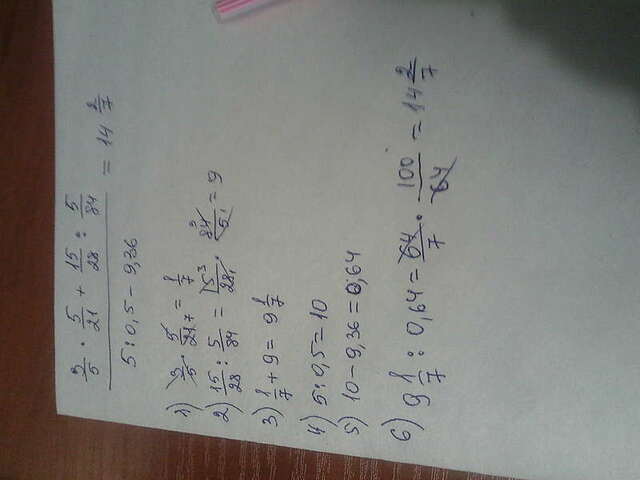 3/5 · 5/21 + 15/28 : 5/84 = 14 2/7
5 : 0,5 − 9,36
1) 3/5 · 5/21 7 = 1/7
2) 15/28 : 5/84 = 15 3/28 1 · 84 3/5 1 = 9
3) 1/7 + 9 = 9 1/7
4) 5 : 0,5 = 10
5) 10 − 9,36 = 0,64
6) 9 1/7 : 0,64 = 64/7 · 100/64 = 14 2/7